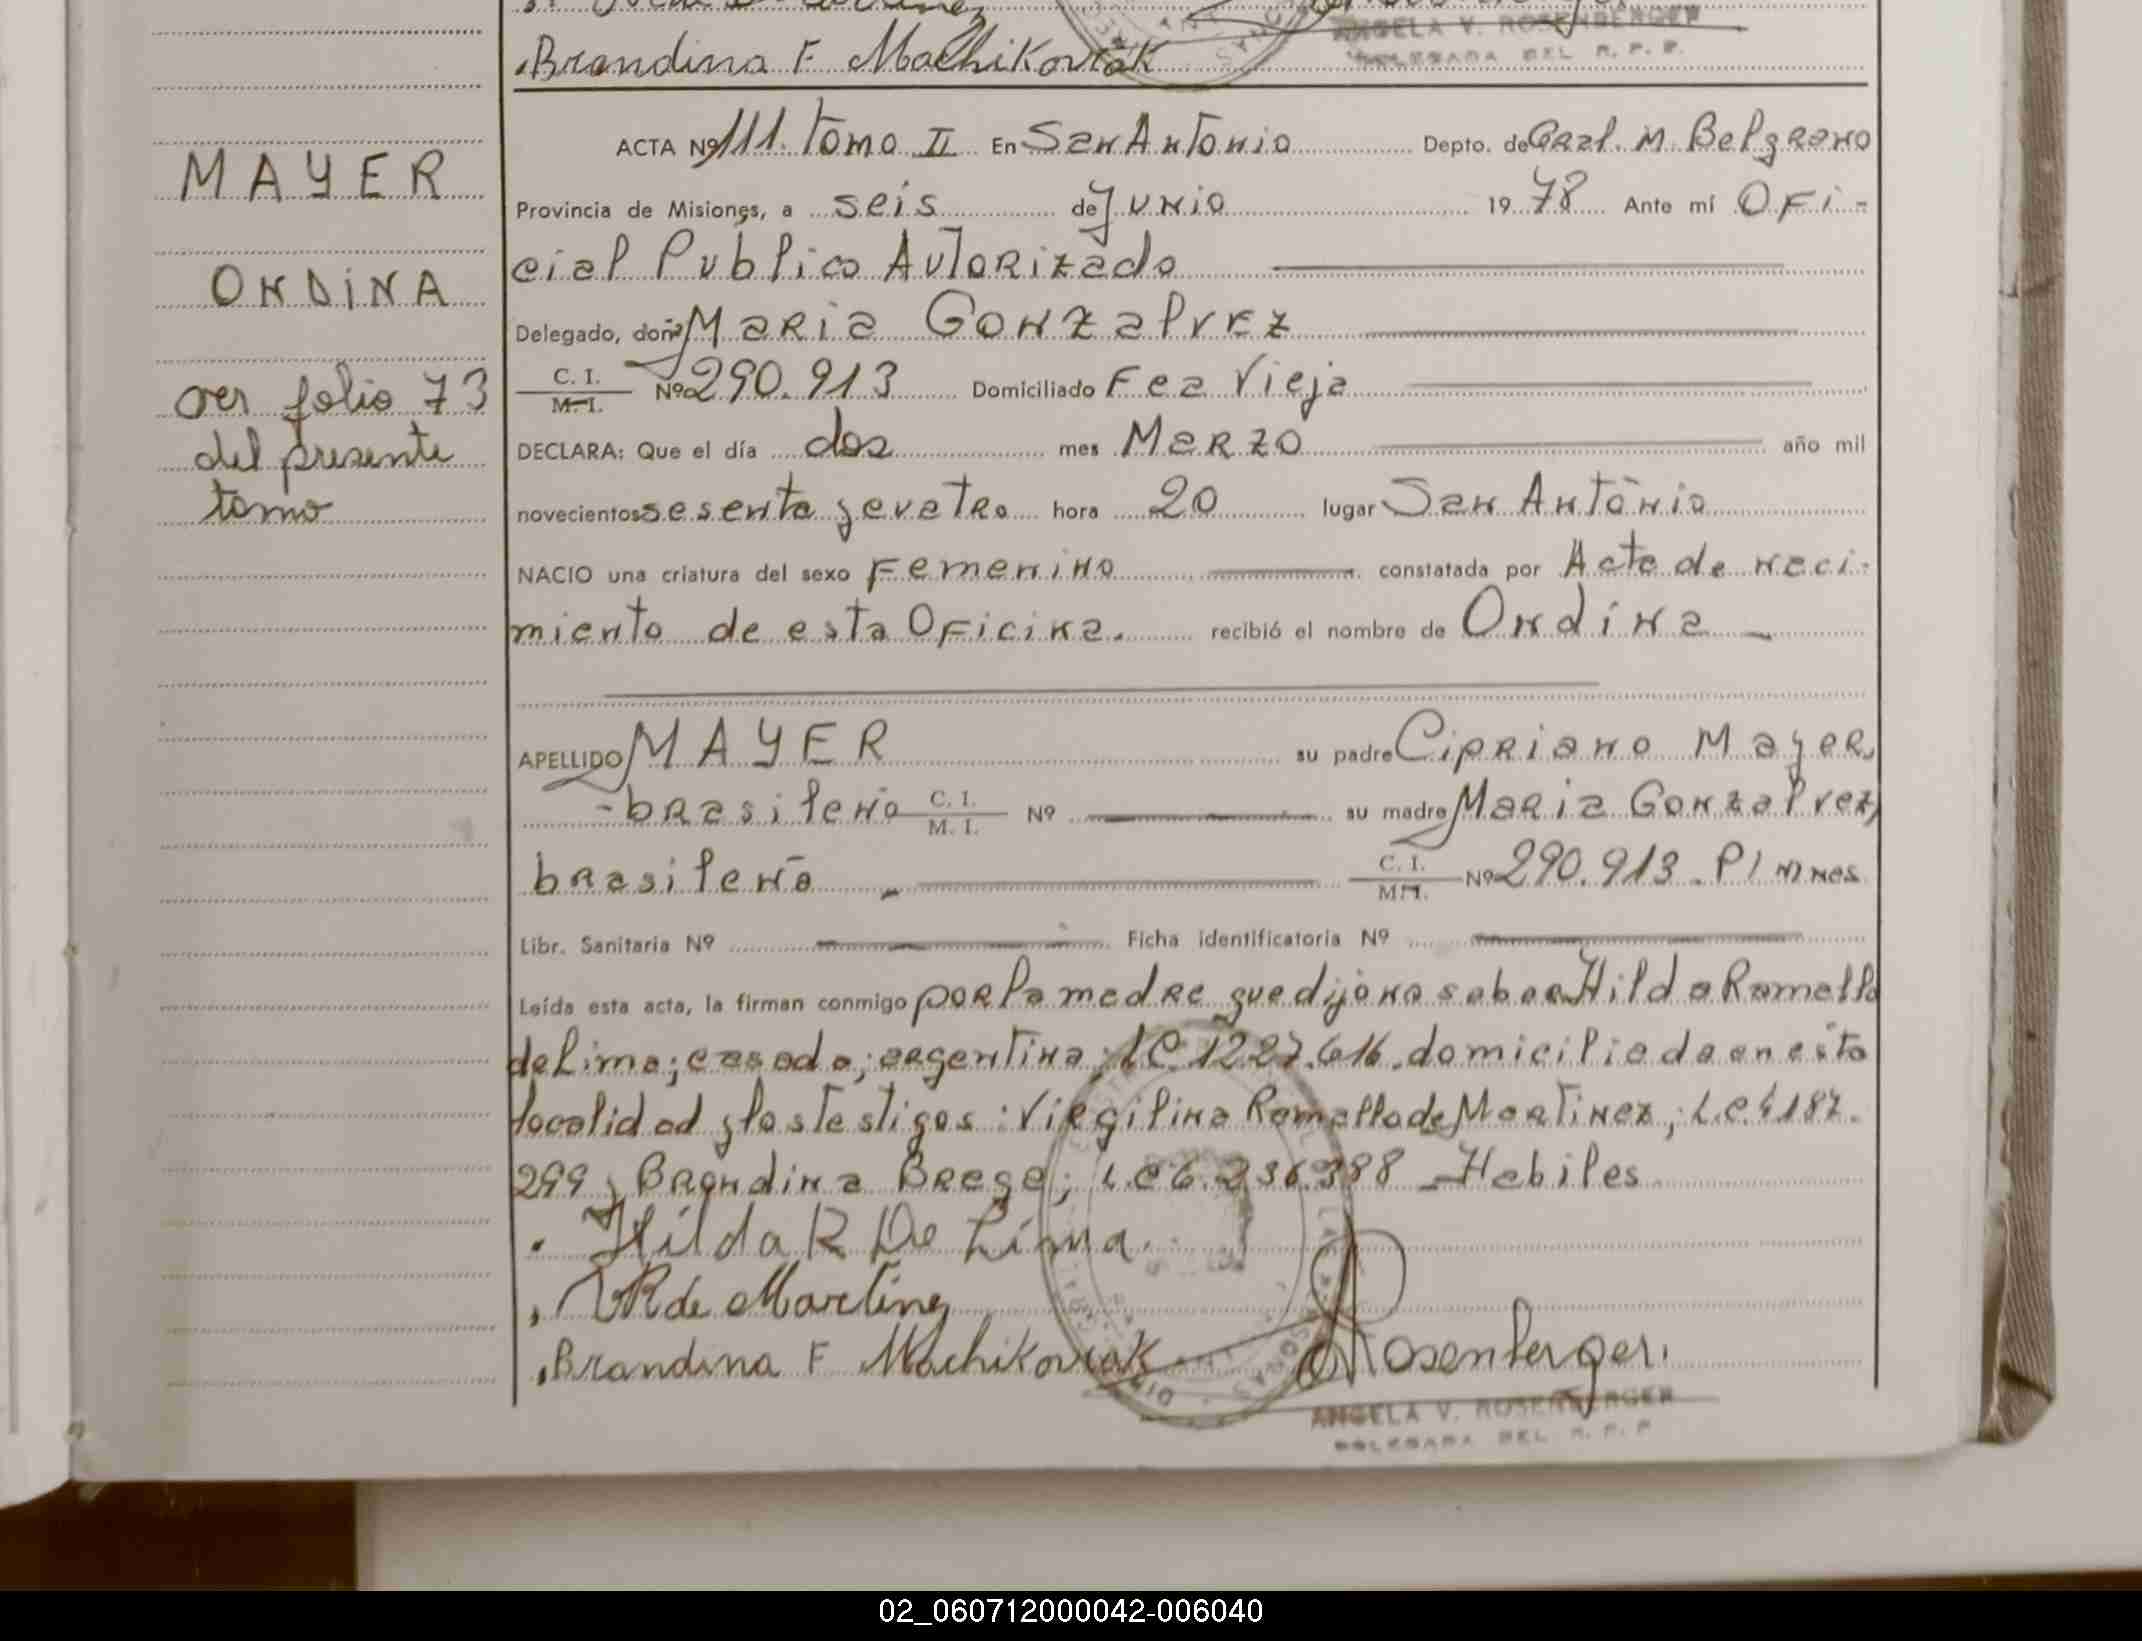 Brandina F Machikoviak
ANGELA V. ROSENBERGER
DELEGADA DEL R. P. P.
MAYER
ORDINA
ver folio 73
del presente
tomo
ACTA Nº 111. Tomo II En San Antonio Depto. de Gral. M. Belgrano
Provincia de Misiones, a seis de Junio 19 78 Ante mí Ofi-
cial Publico Autorizado
Delegado, doña Maria Gonzalvez
C. I. / M. I. Nº 290.913 Domiciliado Fca Vieja
DECLARA: Que el día dos mes Marzo año mil
novecientos sesenta y cuatro hora 20 lugar San Antonio
NACIO una criatura del sexo Femenino constatada por Acta de naci-
miento de esta Oficina. recibió el nombre de Ondina
APELLIDO MAYER su padre Cipriano Mayer,
-brasileño C. I. / M. I. Nº su madre Maria Gonzalvez,
brasileña C. I. / M. I. Nº 290.913. P/ Mnes
Libr. Sanitaria Nº Ficha identificatoria Nº
Leída esta acta, la firman conmigo por la madre que dijo no saber Hilda Ramallo
de Lima; casada; argentina; LC. 1227.616. domiciliada en esta
localidad y los testigos: Virgilina Ramallo de Martinez; L.C. 4187.
299 y Brandina Brege; L.C 6.236.388 - Habiles
Hilda R De Lima.
VR de Martinez
Brandina F Machikoviak
Rosenberger.
ANGELA V. ROSENBERGER
DELEGADA DEL R. P. P
02_060712000042-006040